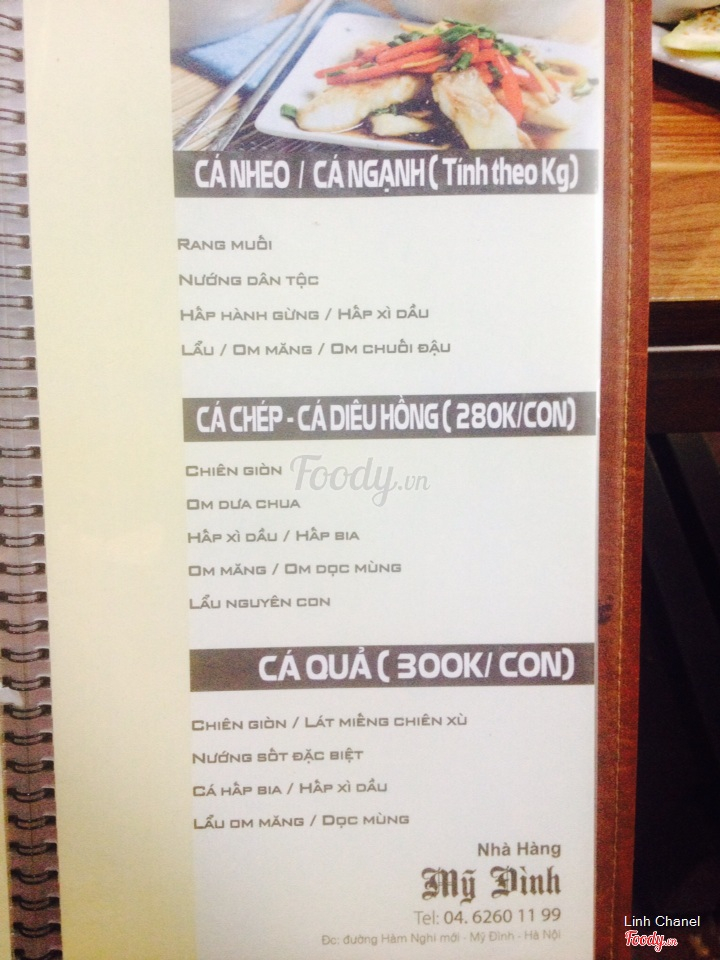 CÁ NHEO / CÁ NGẠNH ( Tính theo Kg)
RANG MUỐI
NƯỚNG DÂN TỘC
HẤP HÀNH GỪNG / HẤP XÌ DẦU
LẨU / OM MĂNG / OM CHUỐI ĐẬU
CÁ CHÉP - CÁ DIÊU HỒNG ( 280K/CON)
CHIÊN GIÒN
Foody.vn
OM DƯA CHUA
HẤP XÌ DẦU / HẤP BIA
OM MĂNG / OM DỌC MÙNG
LẨU NGUYÊN CON
CÁ QUẢ ( 300K/ CON)
CHIÊN GIÒN / LÁT MIẾNG CHIÊN XÙ
NƯỚNG SỐT ĐẶC BIỆT
CÁ HẤP BIA / HẤP XÌ DẦU
LẨU OM MĂNG / DỌC MÙNG
Nhà Hàng
Mỹ Đình
Tel: 04. 6260 11 99
Đc: đường Hàm Nghi mới - Mỹ Đình - Hà Nội
Linh Chanel
Foody.vn